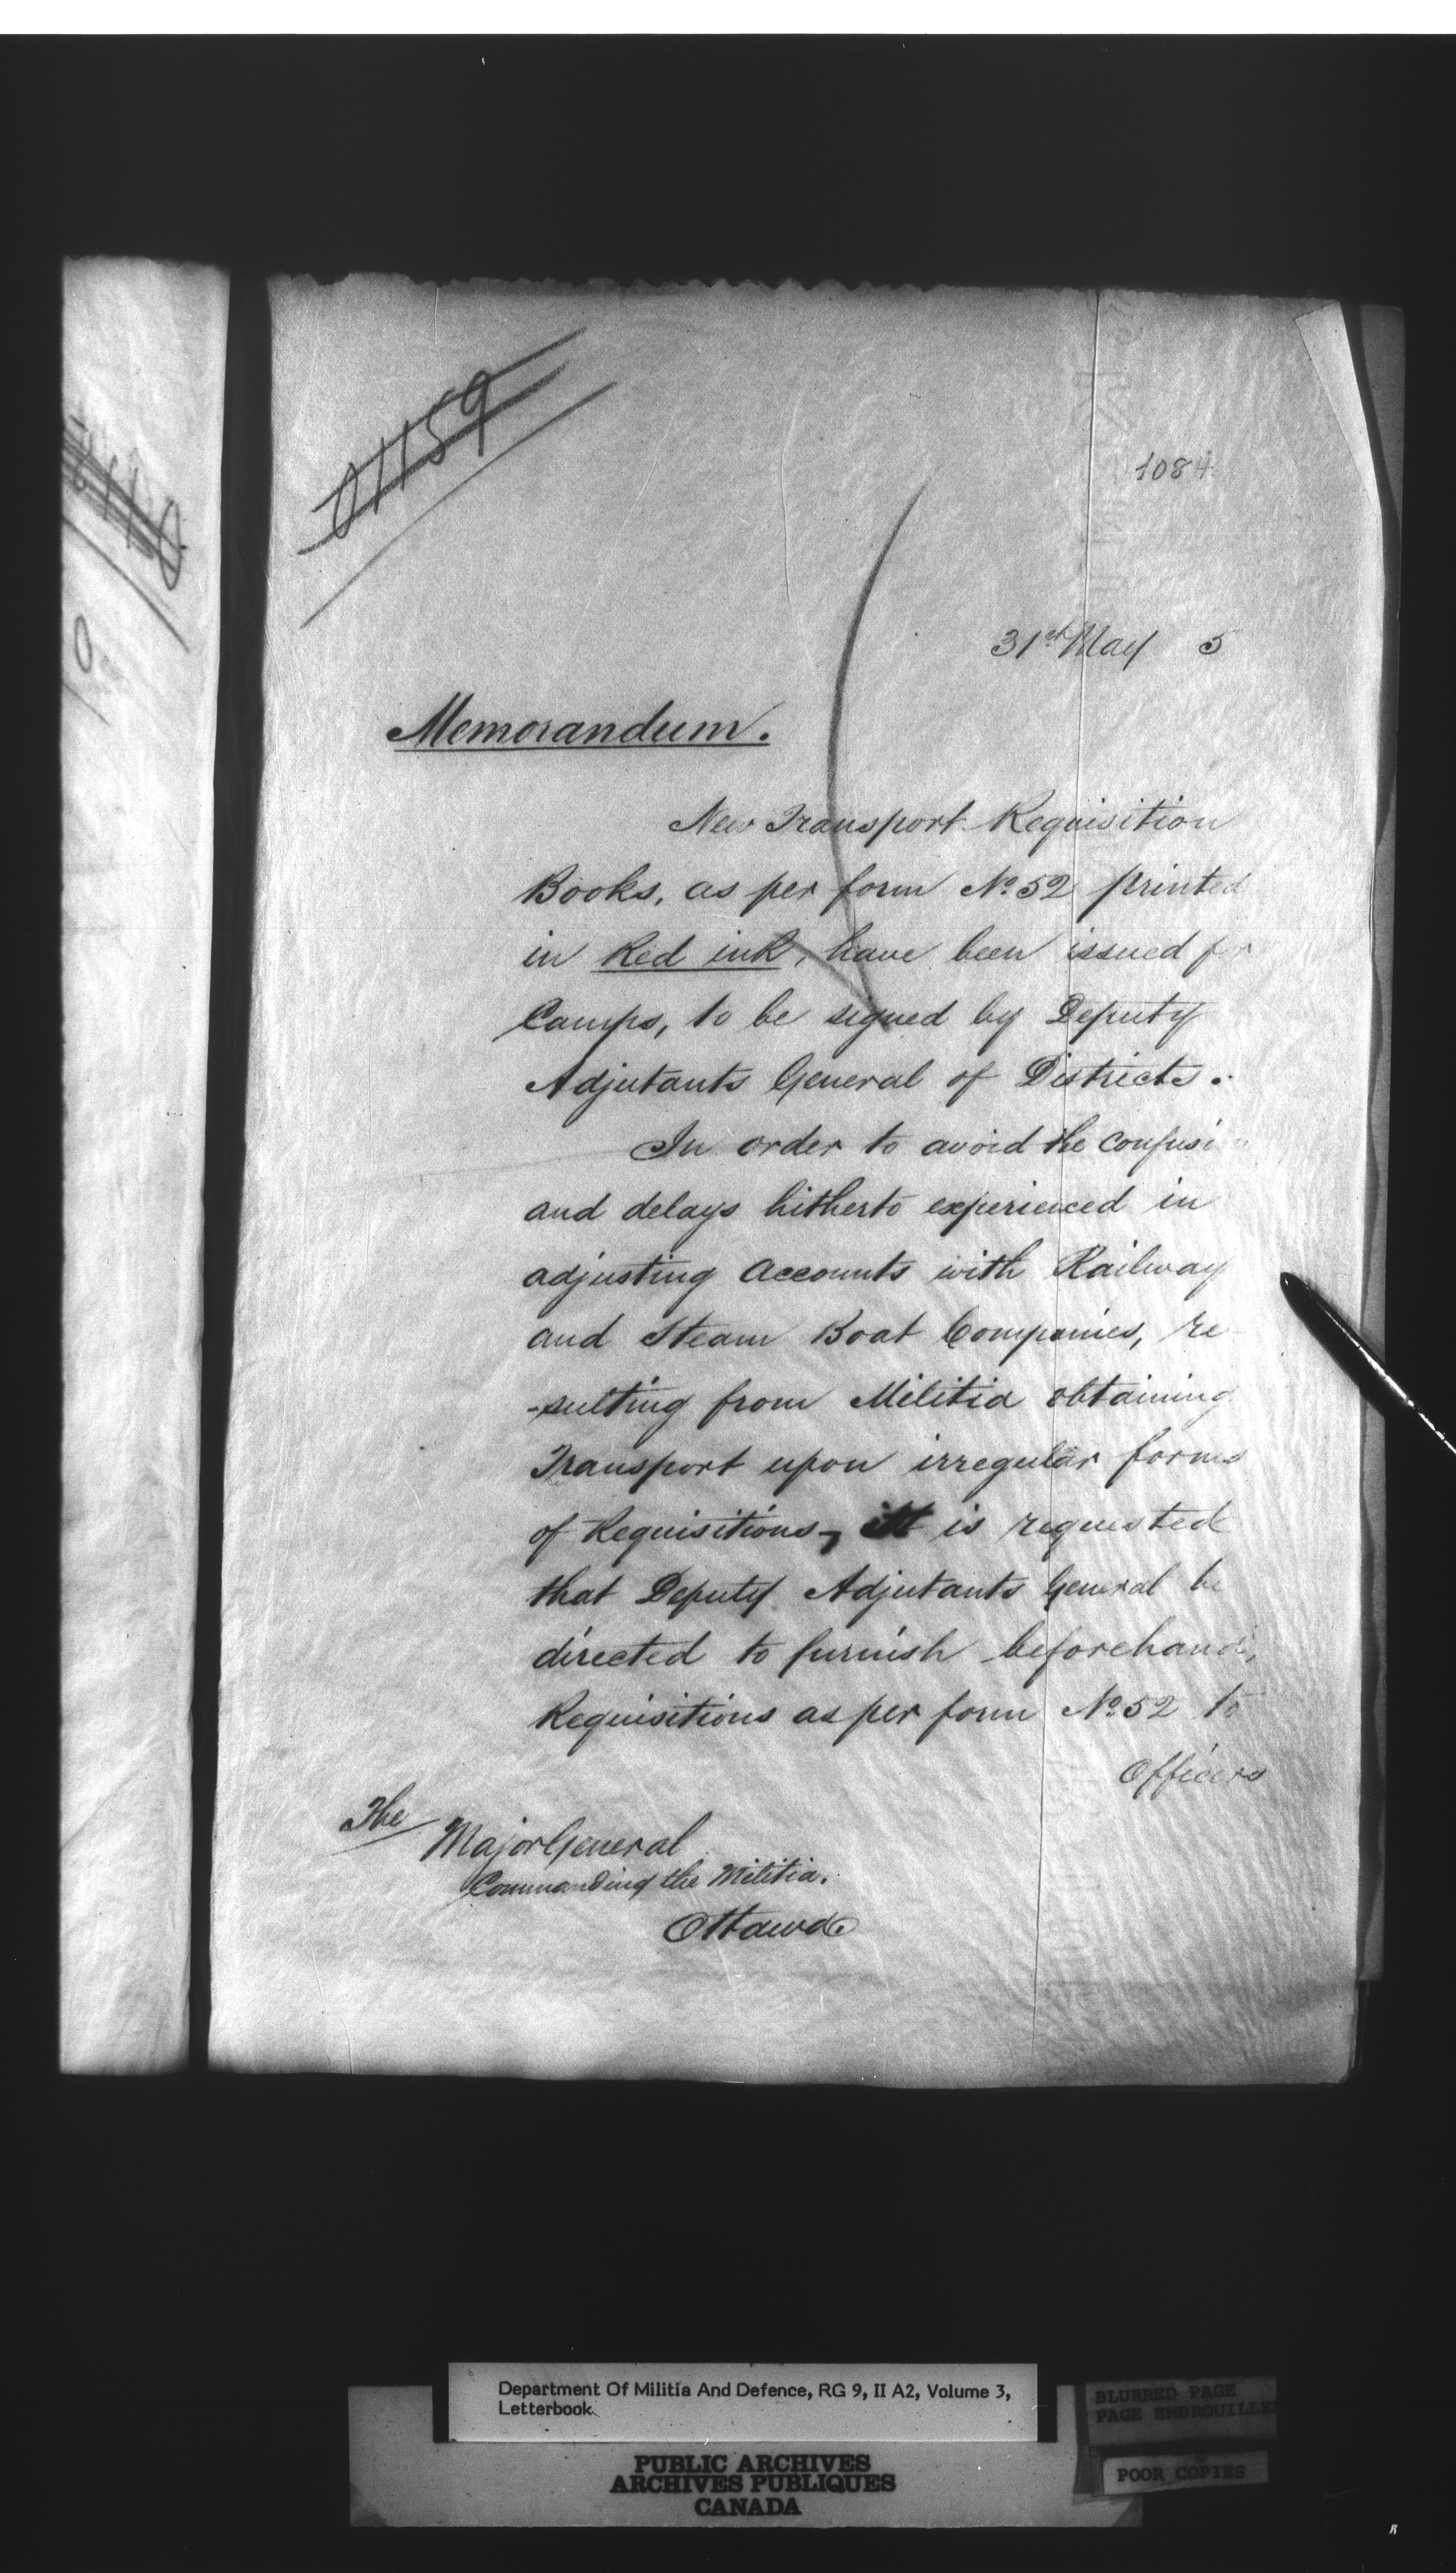 01159
1084
31st May 5
Memorandum.
New Transport Requisition
Books, as per form No. 52 printed
in Red ink, have been issued for
Camps, to be signed by Deputy
Adjutants General of Districts.
In order to avoid the confusi
and delays hitherto experienced in
adjusting accounts with Railway
and Steam Boat Companies, re
-sulting from Militia obtaining
Transport upon irregular forms
of Requisitions, it is requested
that Deputy Adjutants General be
directed to furnish beforehand,
Requisitions as per form No. 52 to
Officers
The Major General
Commanding the Militia.
Ottawa
Department Of Militia And Defence, RG 9, II A2, Volume 3,
Letterbook
BLURRED PAGE
PAGE EMBROUILLE
POOR COPIES
PUBLIC ARCHIVES
ARCHIVES PUBLIQUES
CANADA